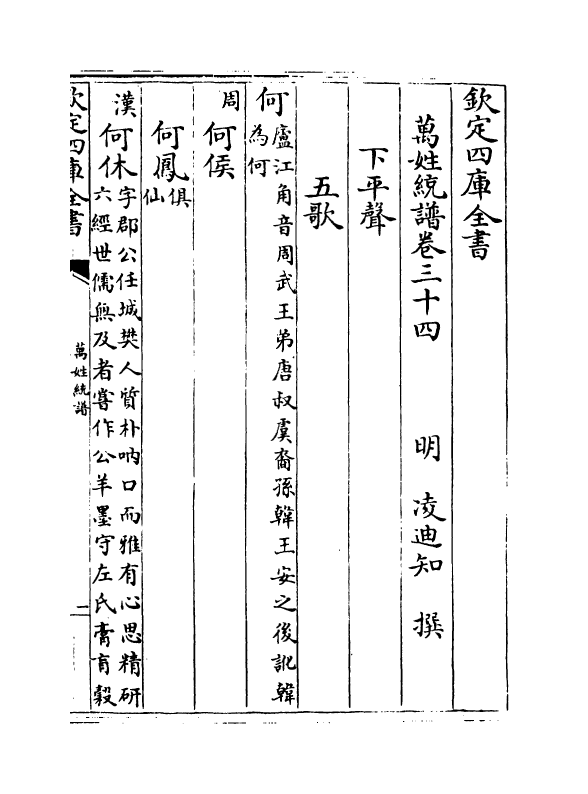 欽定四庫全書
萬姓統譜卷三十四
明 凌迪知 撰
下平聲
五歌
何
廬江角音周武王弟唐叔虞裔孫韓王安之後訛韓
為何
周
何侯
何鳳
俱
仙
漢
何休
字郡公任城樊人質朴吶口而雅有心思精研
六經世儒無及者嘗作公羊墨守左氏膏肓穀
欽定四庫全書
萬姓統譜
一